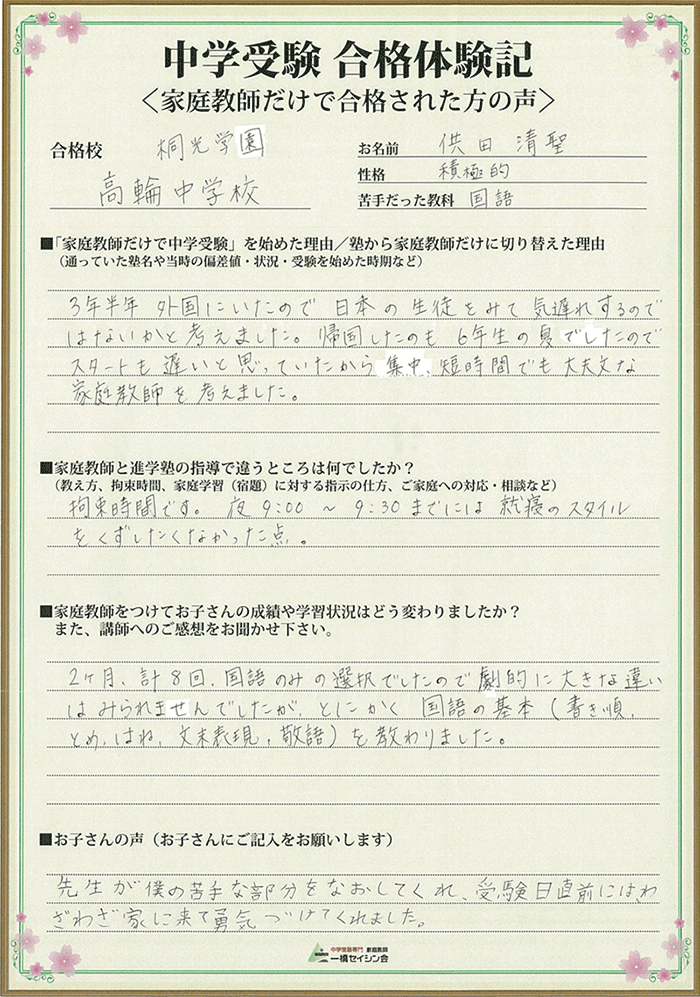 中学受験 合格体験記
＜家庭教師だけで合格された方の声＞
合格校 桐光学園
高輪中学校
お名前 供田 清聖
性格 積極的
苦手だった教科 国語
■「家庭教師だけで中学受験」を始めた理由／塾から家庭教師だけに切り替えた理由
（通っていた塾名や当時の偏差値・状況・受験を始めた時期など）
3年半年 外国にいたので 日本の生徒をみて 気遅れするので
はないかと考えました。帰国したのも 6年生の夏でしたので
スタートも遅いと思っていたから 集中、短時間でも大丈夫な
家庭教師を考えました。
■家庭教師と進学塾の指導で違うところは何でしたか？
（教え方、拘束時間、家庭学習（宿題）に対する指示の仕方、ご家庭への対応・相談など）
拘束時間です。夜 9:00 ～ 9:30 までには 就寝のスタイル
をくずしたくなかった点。
■家庭教師をつけてお子さんの成績や学習状況はどう変わりましたか？
また、講師へのご感想をお聞かせ下さい。
2ヶ月、計8回、国語のみの選択でしたので劇的に大きな違い
はみられませんでしたが、とにかく 国語の基本（書き順、
とめ、はね、文末表現、敬語）を教わりました。
■お子さんの声（お子さんにご記入をお願いします）
先生が僕の苦手な部分をなおしてくれ、受験日直前には、わ
ざわざ家に来て勇気づけてくれました。
中学受験専門 家庭教師
一橋セイシン会